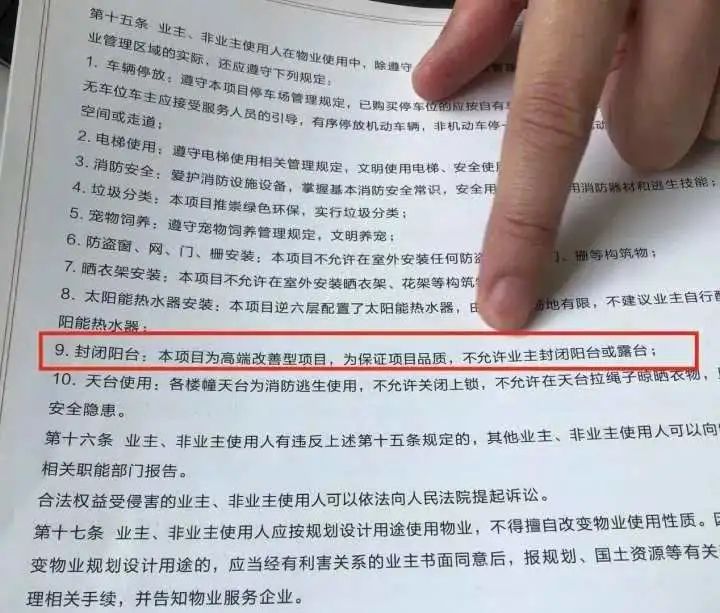 第十五条 业主、非业主使用人在物业使用中，除遵守
业管理区域的实际，还应遵守下列规定：
1. 车辆停放：遵守本项目停车场管理规定，已购买停车位的应按自有
无车位车主应接受服务人员的引导，有序停放机动车辆，非机动车停
空间或走道；
2. 电梯使用：遵守电梯使用相关管理规定，文明使用电梯、安全使
3. 消防安全：爱护消防设施设备，掌握基本消防安全常识，安全用 用消防器材和逃生技能；
4. 垃圾分类：本项目推崇绿色环保，实行垃圾分类；
5. 宠物饲养：遵守宠物饲养管理规定，文明养宠；
6. 防盗窗、网、门、栅安装：本项目不允许在室外安装任何防盗 、栅等构筑物；
7. 晒衣架安装：本项目不允许在室外安装晒衣架、花架等构筑
8. 太阳能热水器安装：本项目逆六层配置了太阳能热水器， 地有限，不建议业主自行配
阳能热水器；
9. 封闭阳台：本项目为高端改善型项目，为保证项目品质，不允许业主封闭阳台或露台；
10. 天台使用：各楼幢天台为消防逃生使用，不允许关闭上锁，不允许在天台拉绳子晾晒衣物，
安全隐患。
第十六条 业主、非业主使用人有违反上述第十五条规定的，其他业主、非业主使用人可以向
相关职能部门报告。
合法权益受侵害的业主、非业主使用人可以依法向人民法院提起诉讼。
第十七条 业主、非业主使用人应按规划设计用途使用物业，不得擅自改变物业使用性质。
变物业规划设计用途的，应当经有利害关系的业主书面同意后，报规划、国土资源等有关
理相关手续，并告知物业服务企业。